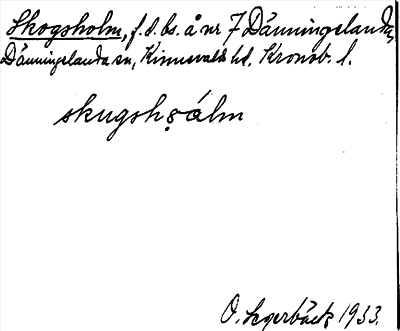 Skogsholm, f.d. bs. å nr 7 Dänningelanda,
Dänningelanda sn, Kinnevalds hd. Kronob. l.
skugshǫ́lm
O. Segerbäck 1933.